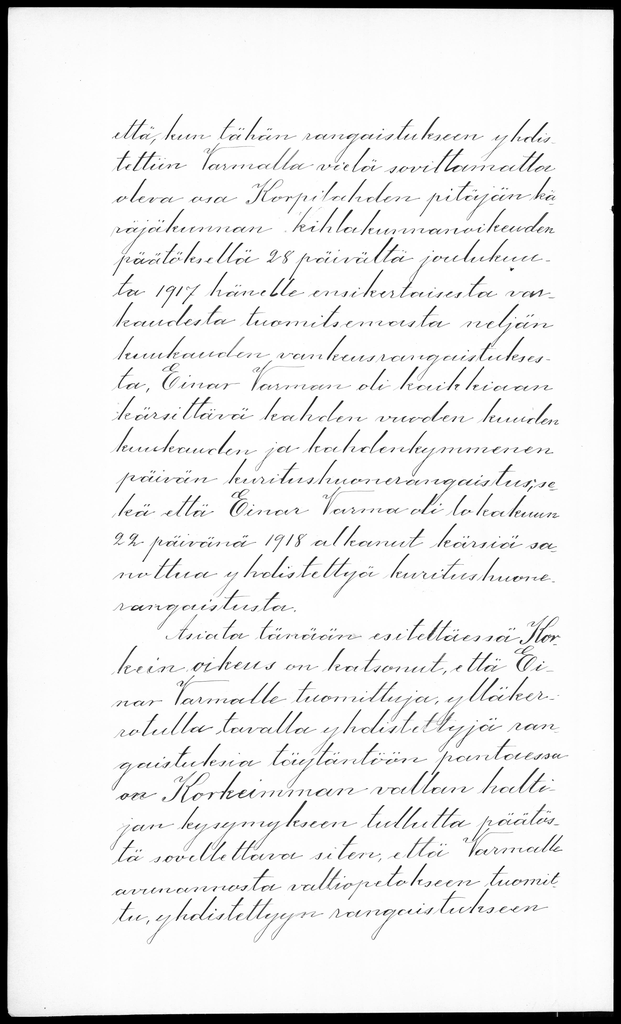 että, kun tähän rangaistukseen yhdis-
tettiin Varmalla vielä sovittamatta
oleva osa Korpilahden pitäjän kä
räjäkunnan kihlakunnanoikeuden
päätöksellä 28 päivältä joulukuu-
ta 1917 hänelle ensikertaisesta var-
kaudesta tuomitsemasta neljän
kuukauden vankeusrangaistukses-
ta, Einar Varman oli kaikkiaan
kärsittävä kahden vuoden kuuden
kuukauden ja kahdenkymmenen
päivän kuritushuonerangaistus; se-
kä että Einar Varma oli lokakuun
22 päivänä 1918 alkanut kärsiä sa-
nottua yhdistettyä kuritushuone-
rangaistusta.
Asiata tänään esiteltäessä Kor-
kein oikeus on katsonut, että Ei-
nar Varmalle tuomittuja, ylläker-
rotulla tavalla yhdistettyjä ran
gaistuksia täytäntöön pantaessa
on Korkeimman vallan halti-
jan kysymykseen tullutta päätös-
tä sovellettava siten, että Varmalle
avunannosta valtiopetokseen tuomit-
tu, yhdistettyyn rangaistukseen